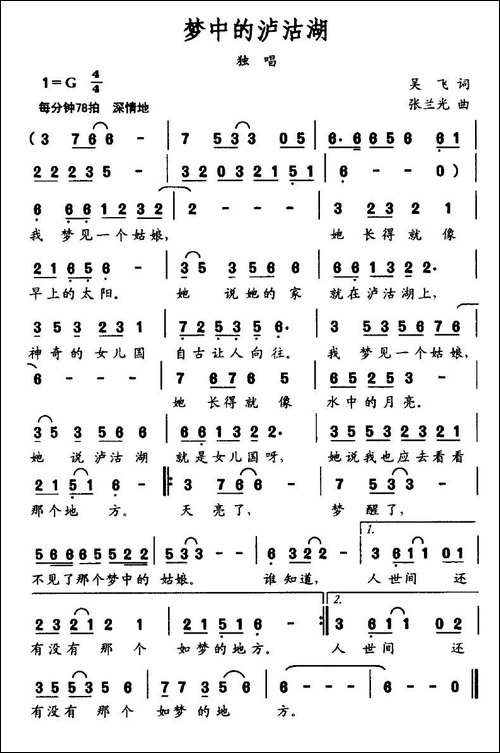 梦中的泸沽湖
独 唱
1=G 4/4
吴 飞 词
每分钟78拍 深情地
张兰光 曲
( 3 7 6 6 - | 7 5 3 3 0 5 | 6· 6 6 5 6 6 1 |
2 2 2 3 5 - | 3 2 0 3 2 1 5 1 | 6 - - 0 )
6 6 6 1 2 3 2 | 2 - - - | 3 2 3 2 1
我 梦见一个姑娘, 她 长得就像
2 1 6 5 6 - | 3 5 3 5 6 5 | 6 6 1 3 2 2·
早上的太阳。 她 说她的家 就在泸沽湖上,
3 5 3 2 3 1 | 7 2 5 3 5 6· | 3 3 5 6 7 6
神奇的女儿国 自古让人向往。 我 梦见一个姑娘,
6 - - - | 7 6 7 6 5 | 6 5 2 5 3 -
她 长得就像 水中的月亮。
3 5 3 5 6 6 | 6 6 1 3 2 2· | 3 5 5 3 2 3 2 1
她 说泸沽湖 就是女儿国呀, 她说我也应去看看
2 1 5 1 6 - :| 3 7 6 6 - | 7 5 3 3 -
那个地 方。 天亮了, 梦 醒了,
5 6 6 6 5 5 2 2 | 5 3 3 - - | 6 3 2 2 - | 1. 3 6 1 1 0 1
不见了那个梦中的 姑娘。 谁知道, 人世间 还
2 3 2 1 2 - | 2 1 5 1 6 - :| 2. 3 6 1 1 0 2
有没有 那 个 如梦的地方。 人世间 还
3 5 5 3 5 6 - | 7 7 3 5 5 | 6 - - - | 6 - - - |
有没有 那 个 如梦的地 方。